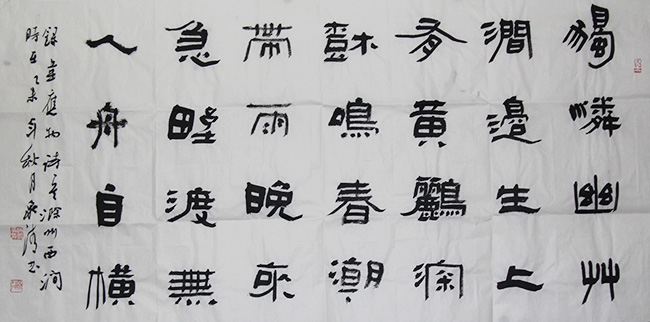 獨憐幽艸
澗邊生上
有黃鸝深
樹鳴春潮
帶雨晚來
急野渡無
人舟自橫
錄韋應物詩滁州西澗
時在乙未年秋月